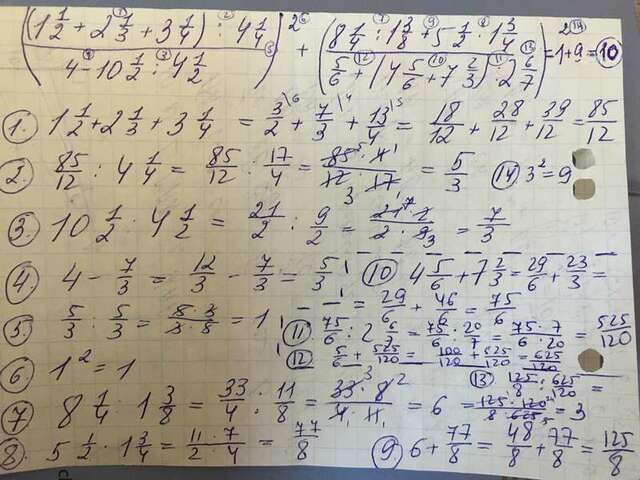 ((1 1/2 + 2 1/3 + 3 1/4) : 4 1/4 / (4 - 10 1/2 : 4 1/2))² + ((8 1/4 : 1 3/8 + 5 1/2 · 1 3/4) / ((5/6 + (4 5/6 + 7 2/3) : 2 6/7)))² = 1 + 9 = 10
1. 1 1/2 + 2 1/3 + 3 1/4 = 3/2 + 7/3 + 13/4 = 18/12 + 28/12 + 39/12 = 85/12
2. 85/12 : 4 1/4 = 85/12 : 17/4 = 85 · 4 / 12 · 17 = 5/3
3. 10 1/2 : 4 1/2 = 21/2 : 9/2 = 21 · 2 / 2 · 9 = 7/3
4. 4 - 7/3 = 12/3 - 7/3 = 5/3
5. 5/3 : 5/3 = 5 · 3 / 3 · 5 = 1
6. 1² = 1
7. 8 1/4 : 1 3/8 = 33/4 : 11/8 = 33 · 8 / 4 · 11 = 6
8. 5 1/2 · 1 3/4 = 11 · 7 / 2 · 4 = 77/8
9. 6 + 77/8 = 48/8 + 77/8 = 125/8
10. 4 5/6 + 7 2/3 = 29/6 + 23/3 =
= 29/6 + 46/6 = 75/6
11. 75/6 : 2 6/7 = 75/6 : 20/7 = 75 · 7 / 6 · 20 = 525/120
12. 5/6 + 525/120 = 100/120 + 525/120 = 625/120
13. 125/8 : 625/120 =
= 125 · 120 / 8 · 625 = 3
14. 3² = 9